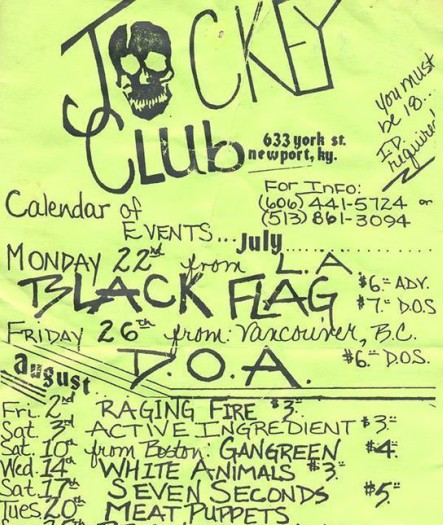 JOCKEY
CLUB
633 york st.
newport, ky.
you must
be 18...
I.D.
required!
For Info:
(606) 441-5724 or
(513) 861-3094
Calendar of
Events... July
Monday 22nd from L.A.
BLACK FLAG $6.00 ADV.
$7.00 D.O.S
Friday 26th from: Vancouver, B.C.
D.O.A. $6.00 D.O.S.
august
Fri. 2nd RAGING FIRE $3.00
Sat. 3rd ACTIVE INGREDIENT $3.00
Sat. 10th from Boston: GANGREEN $4.00
Wed. 14th WHITE ANIMALS $3.00
Sat. 17th SEVEN SECONDS $5.00
Tues. 20th MEAT PUPPETS